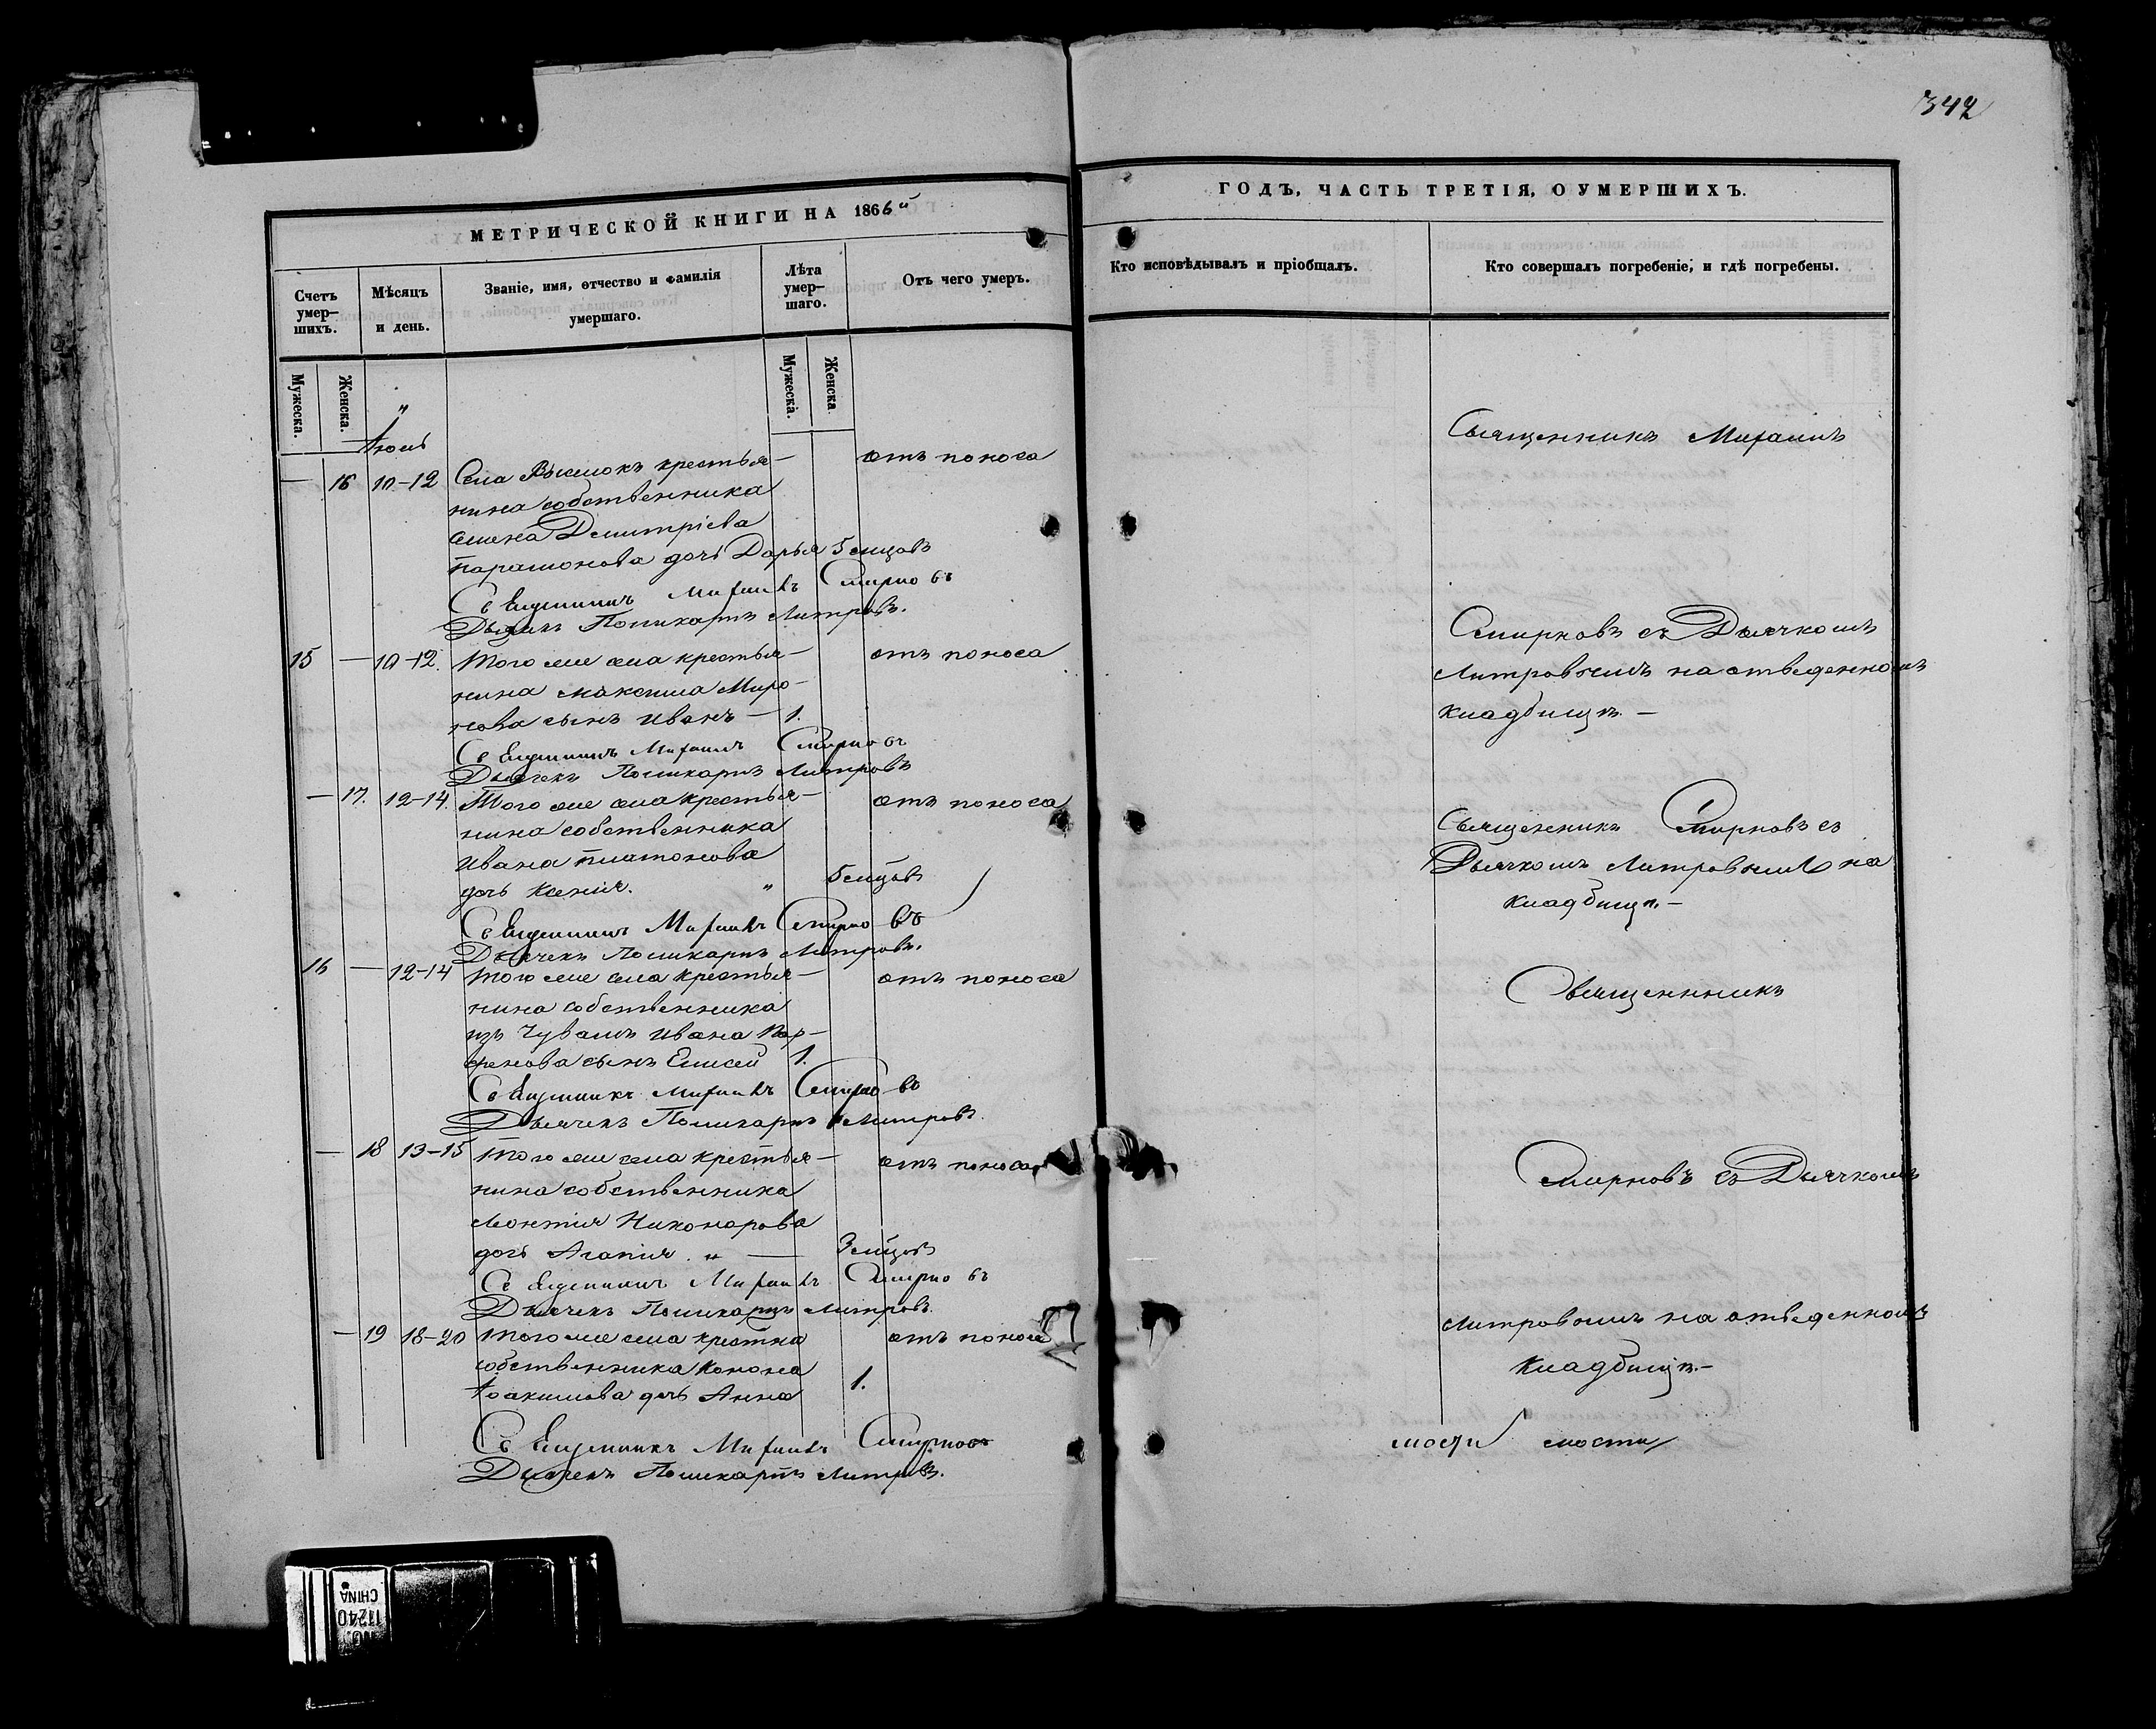 342
МЕТРИЧЕСКОЙ КНИГИ НА 1866й
Счетъ умер-шихъ. Мѣсяцъ и день. Званіе, имя, отчество и фамилія умершаго. Лѣта умер-шаго. Отъ чего умеръ.
Мужеска. Женска. Мужеска. Женска
Іюль
— 16 10-12 Села Высилокъ крестья- отъ поноса
нина собственника
Димитріева
Парамонова дочь Дарья 5 мѣцовъ
Священникъ Михаилъ Смирновъ
Дьячекъ Поликарпъ Митровъ.
15 — 10-12. Того же села крестья- отъ поноса
нина Максима Миро-
нова сынъ Иванъ — 1.
Священникъ Михаилъ Смирновъ
Дьячекъ Поликарпъ Митровъ
— 17. 12-14. Того же села крестья- отъ поноса
нина собственника
Ивана Платонова
дочь Ксенія. " 5 мѣцовъ
Священникъ Михаилъ Смирновъ
Дьячекъ Поликарпъ Митровъ.
16 — 12-14 Того же села крестья- отъ поноса
нина собственника
изъ Чувашъ Ивана Пар-
фенова сынъ Елисей 1.
Священникъ Михаилъ Смирновъ
Дьячекъ Поликарпъ Митровъ
— 18 13-15 Того же села крестья- отъ поноса
нина собственника
Леонтія Никонорова
дочь Агапія. " — 3 мѣцовъ
Священникъ Михаилъ Смирновъ
Дьячекъ Поликарпъ Митровъ.
— 19 18-20 Того же села крестна отъ поноса
собственника Конона
Іоакимова дочь Анна 1.
Священникъ Михаилъ Смирновъ
Дьячекъ Поликарпъ Митровъ.
ГОДЪ, ЧАСТЬ ТРЕТІЯ, О УМЕРШИХЪ.
Кто исповѣдывалъ и пріобщалъ. Кто совершалъ погребеніе, и гдѣ погребены.
Священникъ Михаилъ
Смирновъ съ Дьячкомъ
Митровымъ на отведенномъ
кладбищѣ. —
Священникъ Смирновъ съ
Дьячкомъ Митровымъ на
кладбищѣ. —
Священникъ
Смирновъ съ Дьячкомъ
Митровымъ на отведенномъ
кладбищѣ. —
мости
NO. 11240
CHINA